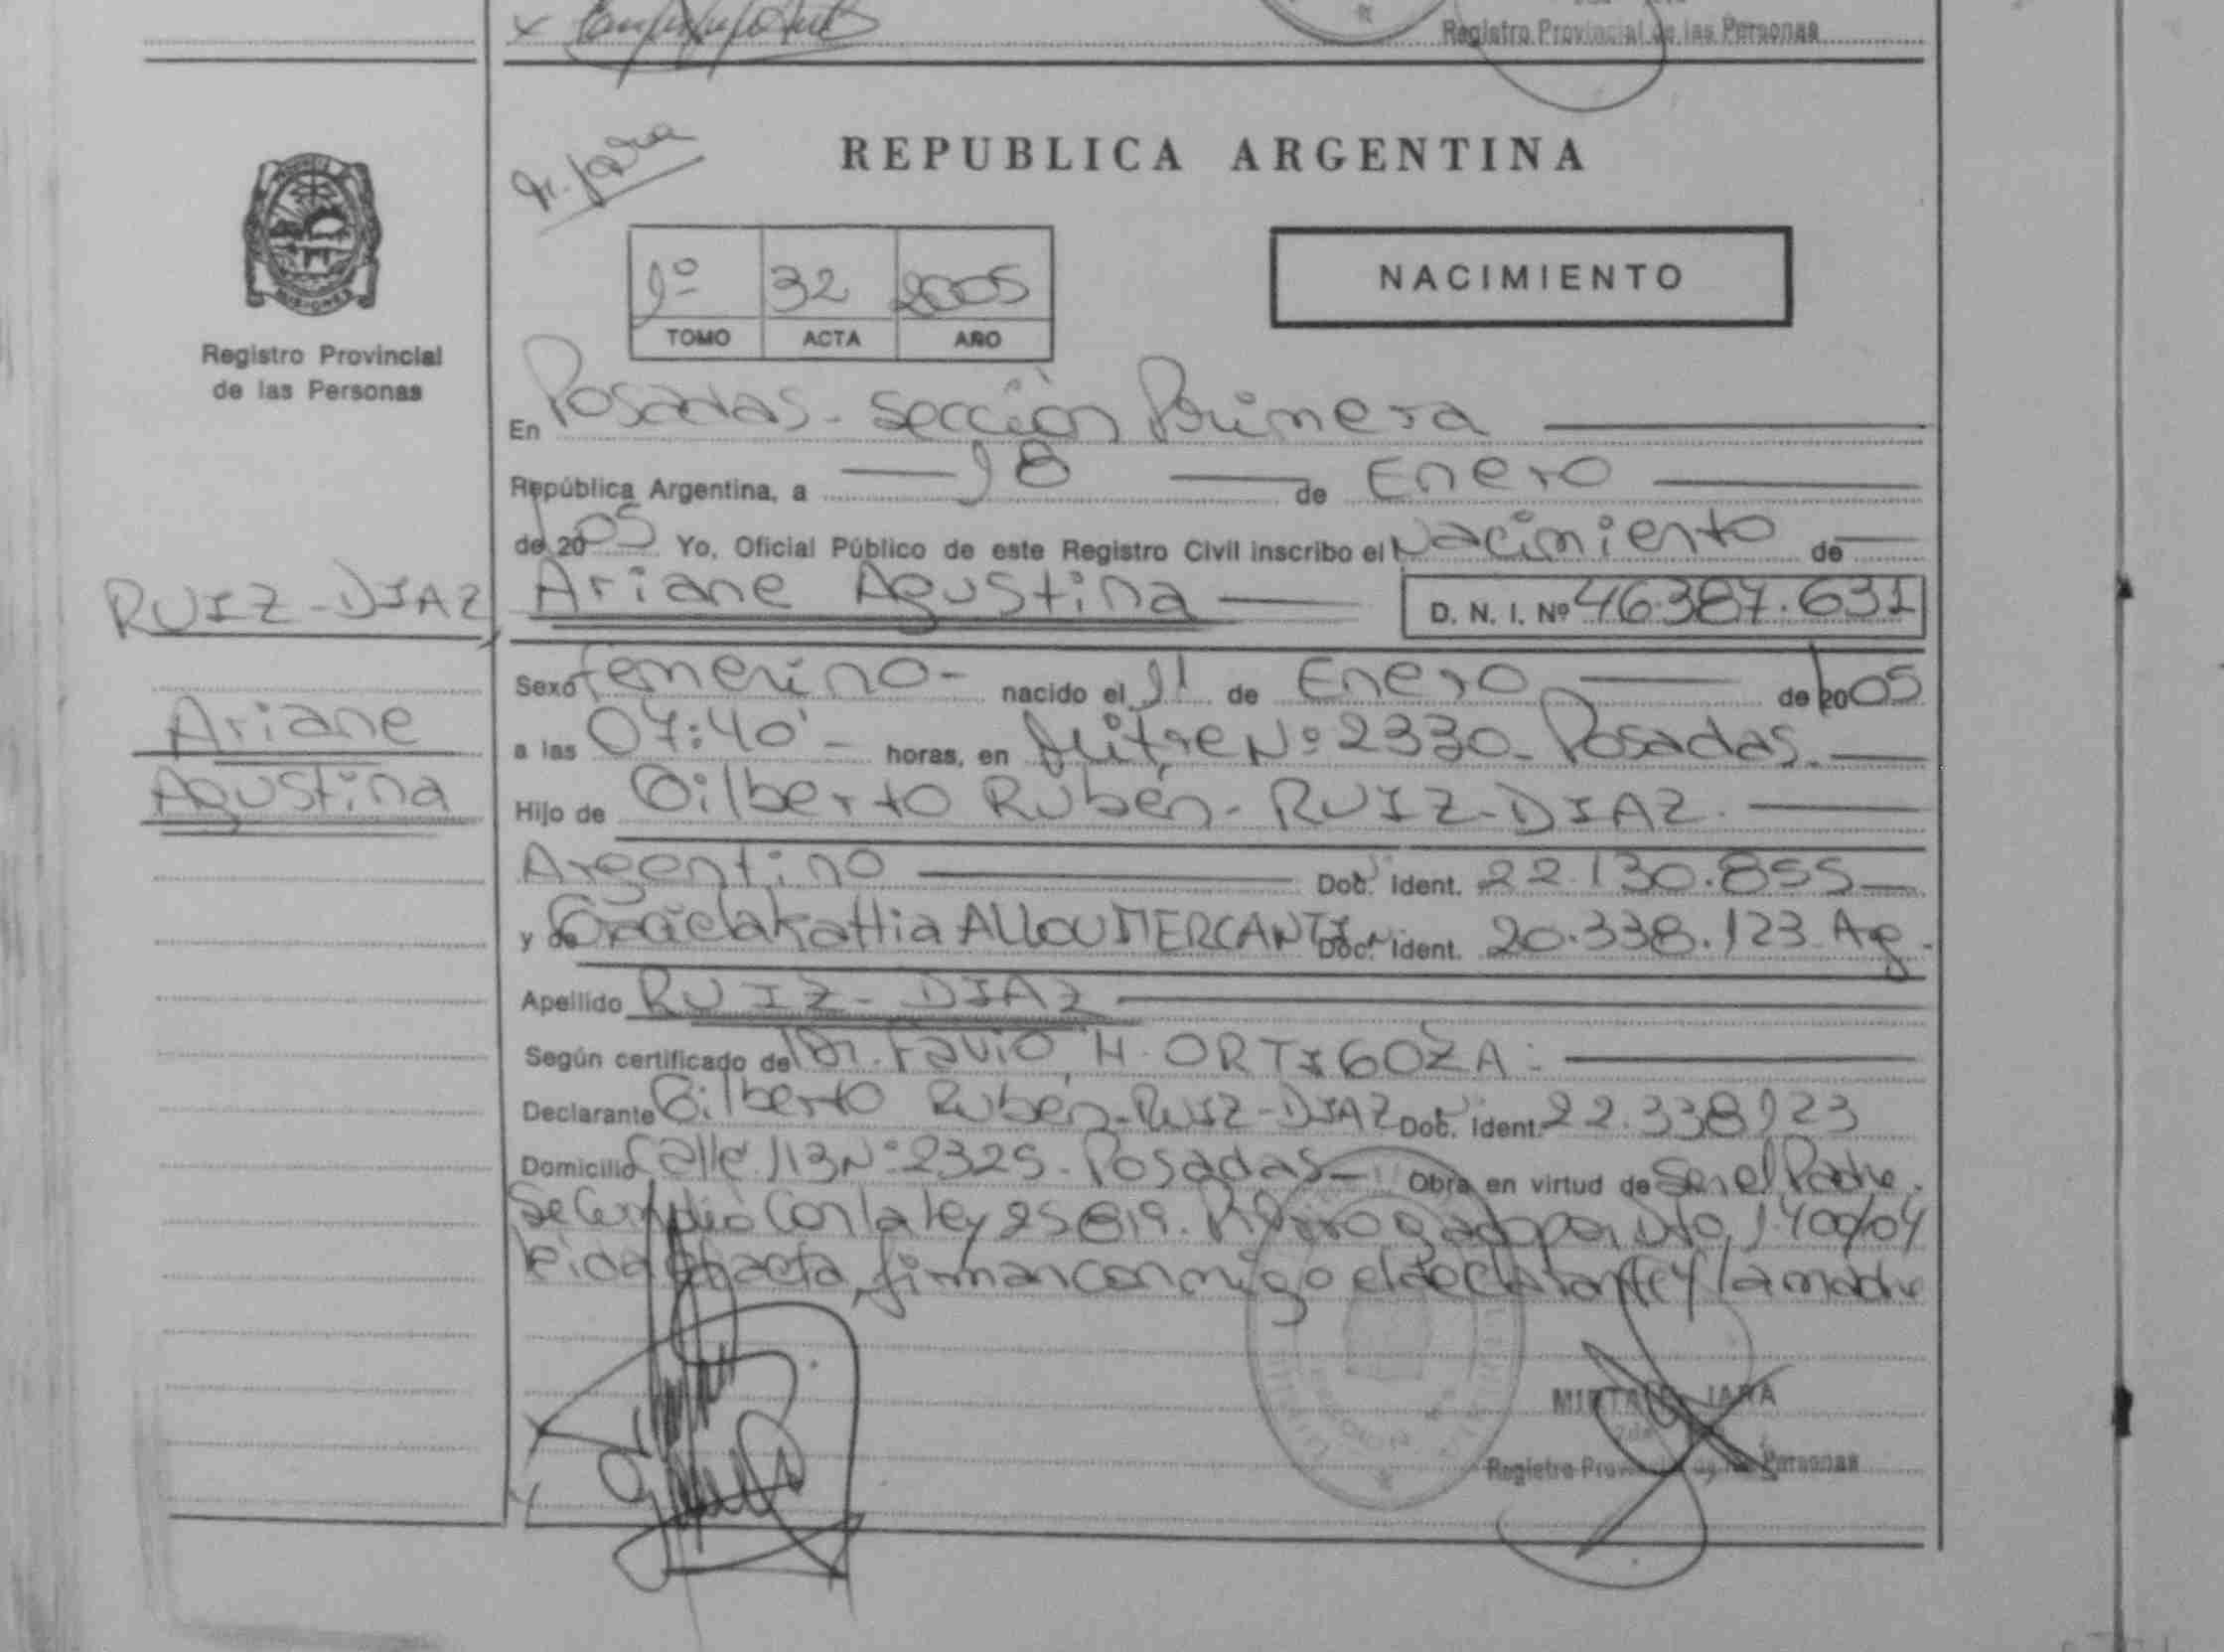 Registro Provincial de las Personas
REPUBLICA ARGENTINA
1º 32 2005
TOMO ACTA AÑO
NACIMIENTO
MISIONES
Registro Provincial
de las Personas
En Posadas - Sección Primera
República Argentina, a 18 de Enero
de 2005 Yo, Oficial Público de este Registro Civil inscribo el Nacimiento de
RUIZ-DIAZ
Ariane Agustina D. N. I. Nº 46.387.631
Sexo femenino - nacido el 11 de Enero de 2005
Ariane
a las 07:40' - horas, en Mitre Nº 2330 - Posadas.
Agustina
Hijo de Gilberto Rubén - RUIZ-DIAZ.
Argentino Doc. Ident. 22.130.855
y de Graciela Kattia ALLOU MERCANTI Doc. Ident. 20.338.123 Ag.
Apellido RUIZ-DIAZ
Según certificado de Dr. Favio H. ORTIGOZA.
Declarante Gilberto Rubén - RUIZ-DIAZ Doc. Ident. 22.338123
Domicilio Calle 113 Nº 2325 - Posadas - Obra en virtud de Ser el Padre.
Se Cumplió Con la ley 25819. Prorrogado por Dto. 1400/04
leida el acta, firman conmigo el declarante y la madre
JARA
Registro Provincial de las Personas